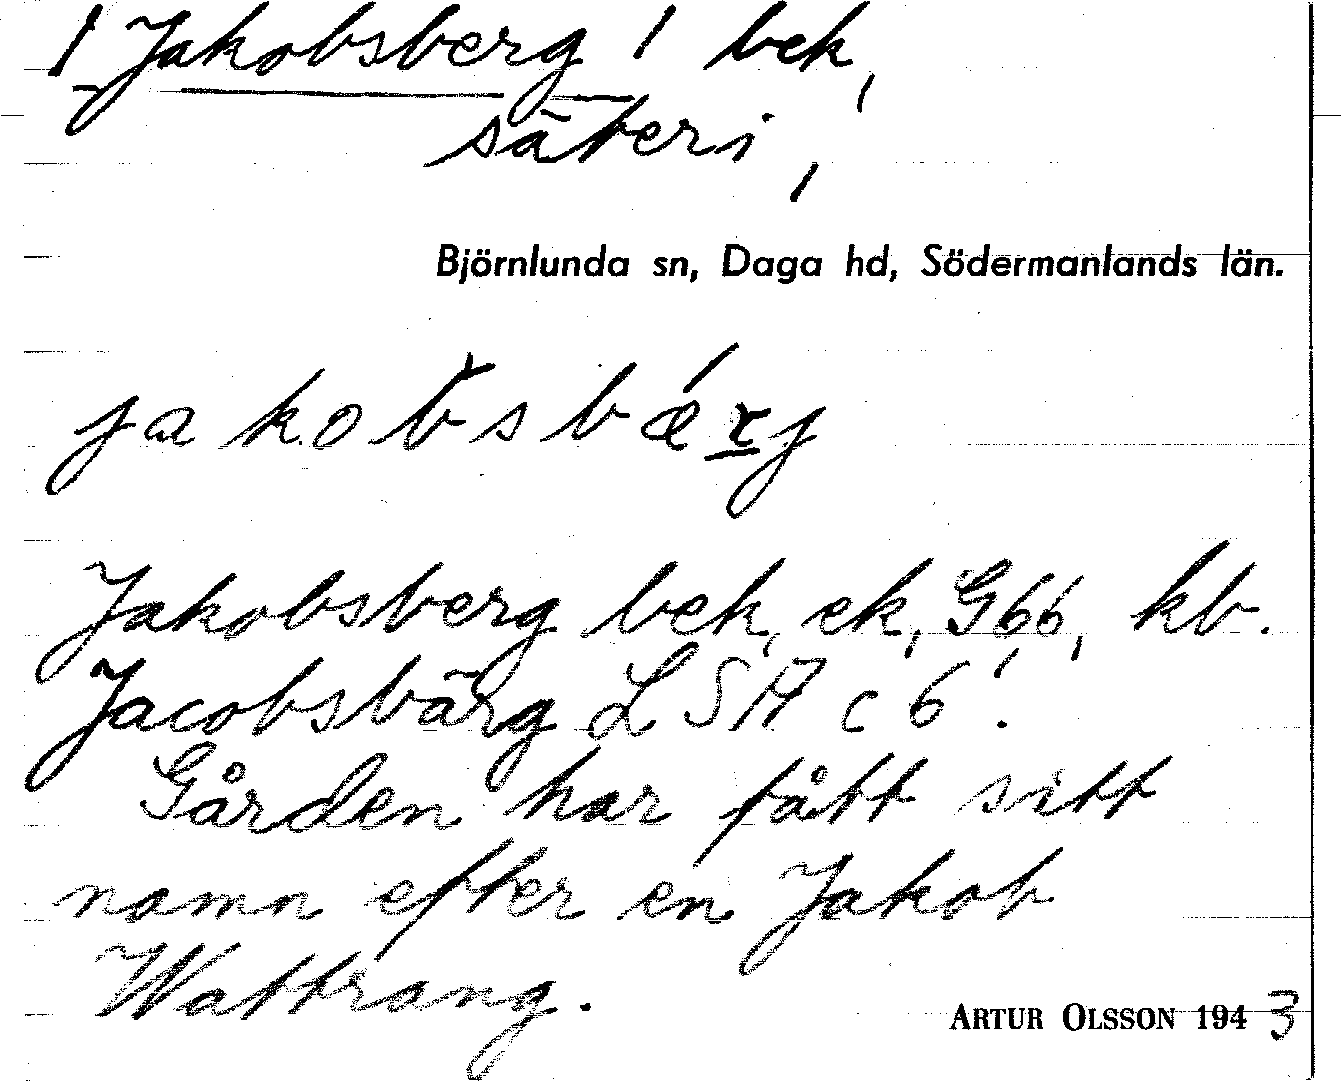 1 Jakobsberg 1 bek,
säteri,
Björnlunda sn, Daga hd, Södermanlands län.
jakobsbærj
Jakobsberg bek, ek, G66, kb.
Jacobsbärg LSA c 6.
Gården har fått sitt
namn efter en Jakob
Wattrang.
ARTUR OLSSON 1943